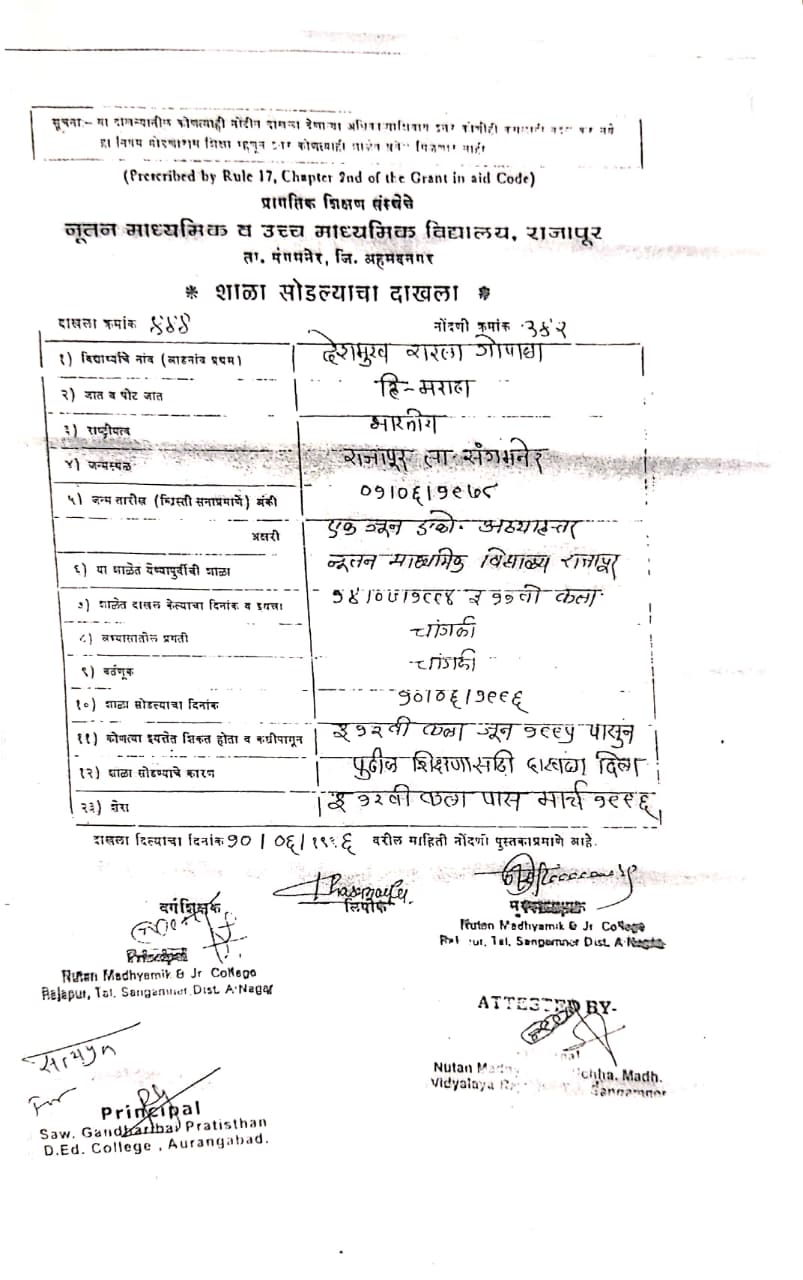 सूचना:- या दाखल्यातील कोणत्याही नोंदीत दाखला देणाऱ्या अधिकाऱ्याशिवाय इतर कोणीही कसलाही बदल करू नये
हा नियम मोडणारास शिक्षा म्हणून
(Prescribed by Rule 17, Chapter 2nd of the Grant in aid Code)
प्रागतिक शिक्षण संस्थेचे
नूतन माध्यमिक व उच्च माध्यमिक विद्यालय, राजापूर
ता. संगमनेर, जि. अहमदनगर
* शाळा सोडल्याचा दाखला *
दाखला क्रमांक ४४४ नोंदणी क्रमांक ३४२
१) विद्यार्थ्याचे नांव (आडनांव प्रथम) देशमुख सरला गोपाळा
२) जात व पोट जात हि-मराठा
३) राष्ट्रीयत्व भारतीय
४) जन्मस्थळ राजापूर ता. संगमनेर
५) जन्म तारीख (ख्रिस्ती सनाप्रमाणे) अंकी ०१/०६/१९७८
अक्षरी एक जून इको. अठ्याहत्तर
६) या शाळेत येण्यापुर्वीची शाळा नूतन माध्यमिक विद्यालय राजापूर
७) शाळेत दाखल केल्याचा दिनांक व इयत्ता १४/०७/१९९४ इ ११वी कला
८) अभ्यासातील प्रगती चांगली
९) वर्तणूक चांगली
१०) शाळा सोडल्याचा दिनांक १०/०६/१९९६
११) कोणत्या इयत्तेत शिकत होता व कधीपासून इ १२वी कला जून १९९५ पासुन
१२) शाळा सोडण्याचे कारण पुढील शिक्षणासाठी दाखला दिला
१३) शेरा इ १२वी कला पास मार्च १९९६
दाखला दिल्याचा दिनांक १० / ०६ / १९९६ वरील माहिती नोंदणी पुस्तकाप्रमाणे आहे.
वर्गशिक्षक लिपीक
Principal
Nutan Madhyamik & Jr College
Rajapur, Tal. Sangamner, Dist. A.Nagar
Nutan Madhyamik & Jr College
Rajapur, Tal. Sangamner Dist. A.Nagar
ATTESTED BY-
Nutan Madh
Vidyalaya
Uchha. Madh.
Sangamner
सत्यप्रत
For
Principal
Saw. Gandharibai Pratisthan
D.Ed. College , Aurangabad.